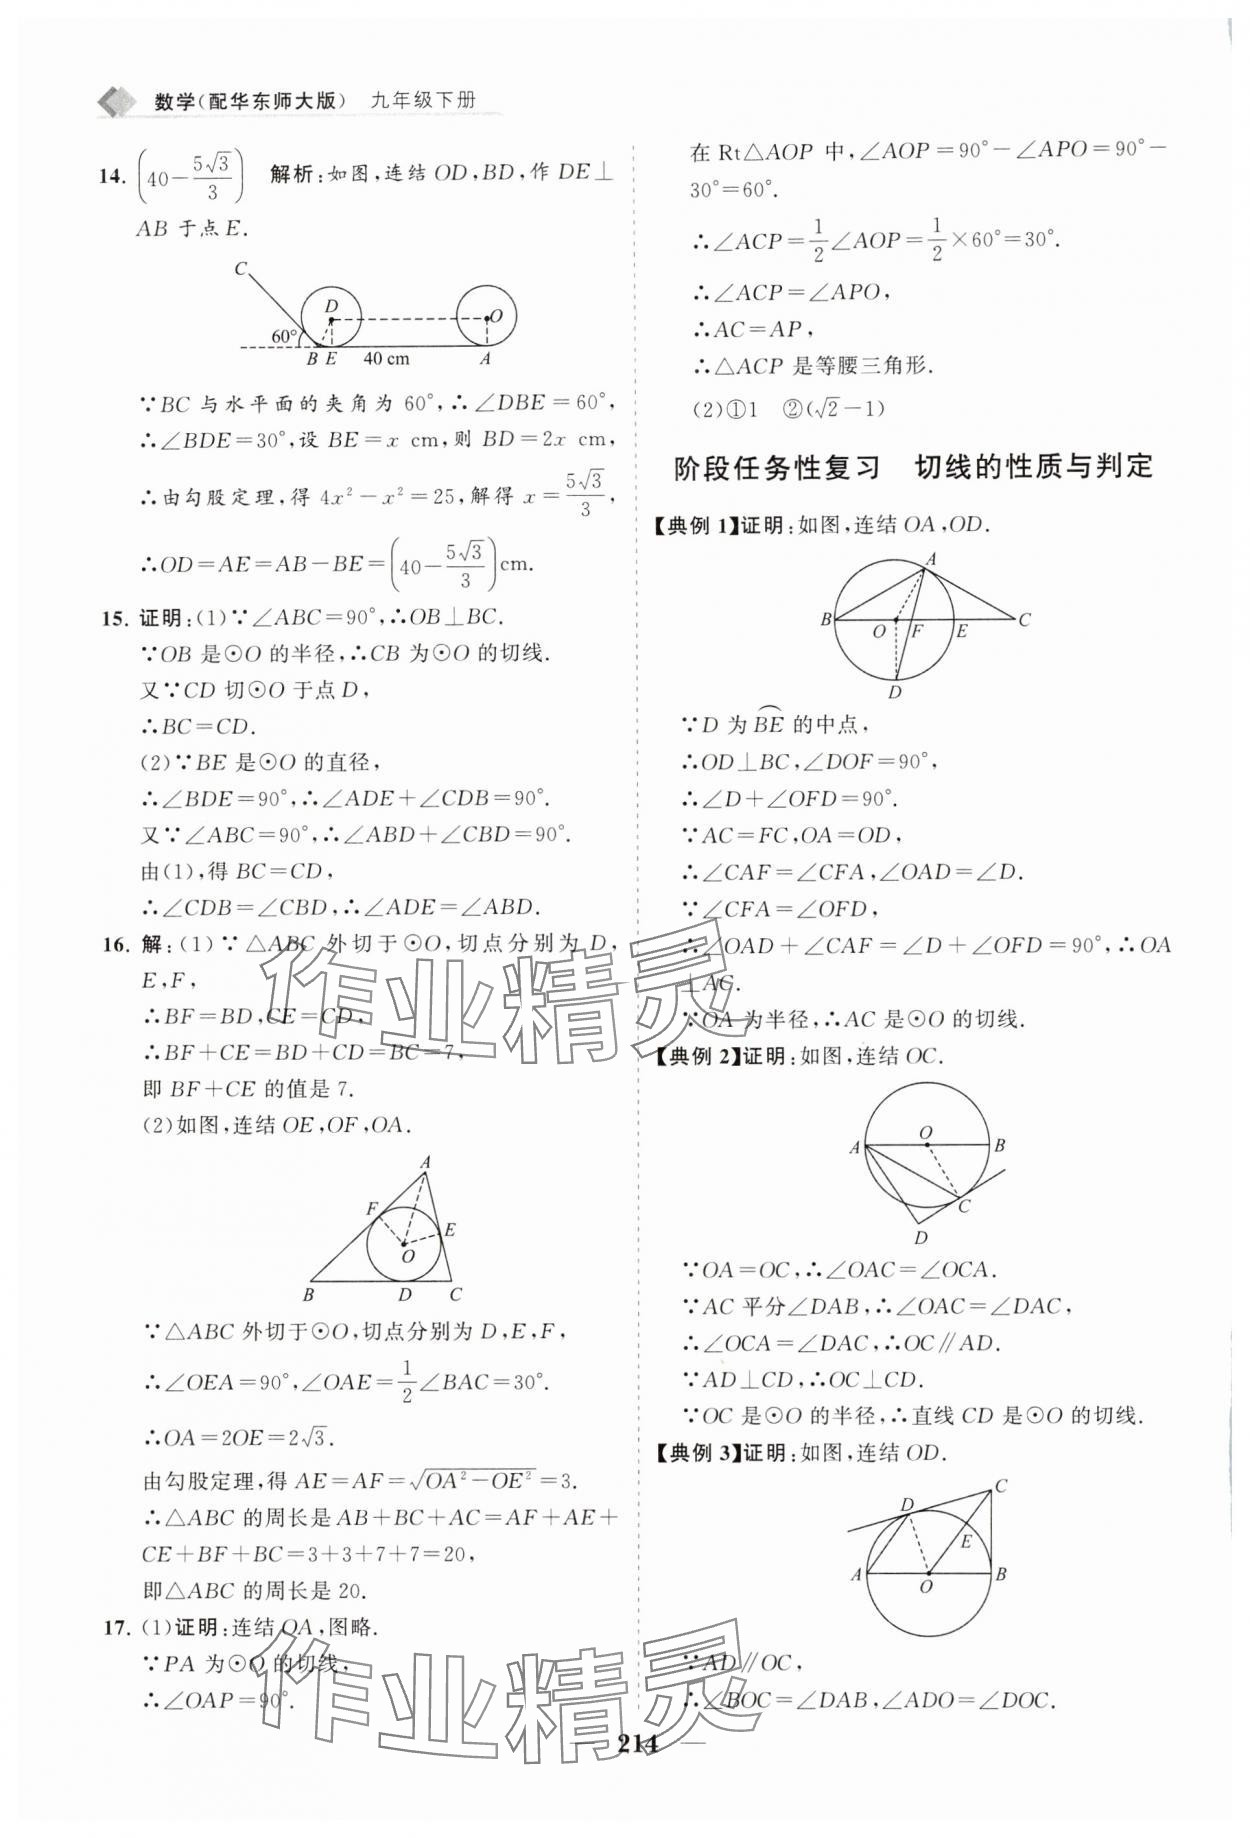 数学(配华东师大版) 九年级下册
14. (40－5√3/3) 解析:如图,连结OD,BD,作DE⊥
AB于点E.
C
D
O
60°
B E 40 cm A
∵BC与水平面的夹角为60°,∴∠DBE=60°,
∴∠BDE=30°,设BE=x cm,则BD=2x cm,
∴由勾股定理,得4x²－x²=25,解得x=5√3/3,
∴OD=AE=AB－BE=(40－5√3/3)cm.
15. 证明:(1)∵∠ABC=90°,∴OB⊥BC.
∵OB是⊙O的半径,∴CB为⊙O的切线.
又∵CD切⊙O于点D,
∴BC=CD.
(2)∵BE是⊙O的直径,
∴∠BDE=90°,∴∠ADE+∠CDB=90°.
又∵∠ABC=90°,∴∠ABD+∠CBD=90°.
由(1),得BC=CD,
∴∠CDB=∠CBD,∴∠ADE=∠ABD.
16. 解:(1)∵△ABC外切于⊙O,切点分别为D,
E,F,
∴BF=BD,CE=CD,
∴BF+CE=BD+CD=BC=7,
即BF+CE的值是7.
(2)如图,连结OE,OF,OA.
A
F
E
O
B D C
∵△ABC外切于⊙O,切点分别为D,E,F,
∴∠OEA=90°,∠OAE=1/2∠BAC=30°.
∴OA=2OE=2√3.
由勾股定理,得AE=AF=√(OA²－OE²)=3.
∴△ABC的周长是AB+BC+AC=AF+AE+
CE+BF+BC=3+3+7+7=20,
即△ABC的周长是20.
17. (1)证明:连结OA,图略.
∵PA为⊙O的切线,
∴∠OAP=90°.
在Rt△AOP中,∠AOP=90°－∠APO=90°－
30°=60°.
∴∠ACP=1/2∠AOP=1/2×60°=30°.
∴∠ACP=∠APO,
∴AC=AP,
∴△ACP是等腰三角形.
(2)①1 ②(√2－1)
阶段任务性复习 切线的性质与判定
【典例1】证明:如图,连结OA,OD.
A
B O F E C
D
∵D为BE⌒的中点,
∴OD⊥BC,∠DOF=90°,
∴∠D+∠OFD=90°.
∵AC=FC,OA=OD,
∴∠CAF=∠CFA,∠OAD=∠D.
∵∠CFA=∠OFD,
∴∠OAD+∠CAF=∠D+∠OFD=90°,∴OA
⊥AC.
∵OA为半径,∴AC是⊙O的切线.
【典例2】证明:如图,连结OC.
O
A B
C
D
∵OA=OC,∴∠OAC=∠OCA.
∵AC平分∠DAB,∴∠OAC=∠DAC,
∴∠OCA=∠DAC,∴OC∥AD.
∵AD⊥CD,∴OC⊥CD.
∵OC是⊙O的半径,∴直线CD是⊙O的切线.
【典例3】证明:如图,连结OD.
C
D
E
A O B
∵AD∥OC,
∴∠BOC=∠DAB,∠ADO=∠DOC.
作业精灵
作业精灵
214